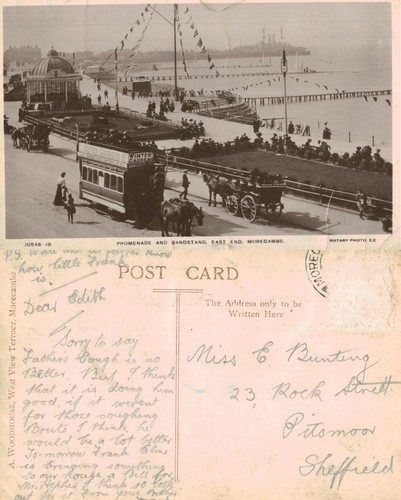 10546-18
PROMENADE AND BANDSTAND, EAST END, MORECAMBE.
ROTARY PHOTO, E.C
P.S. know
how little Frank
is
POST CARD
MOREC
The Address only to be
Written Here
A. WOODHOUSE, West View Terrace, Morecambe
Dear Edith
Sorry to say
Fathers Cough is no
Better But I think
that it is doing him
good if it wernt
for those coughing
Bouts I think he
would be a lot better
To-morrow Frank
is bringing something
to our house a bill for
Mr I think to look
out for ys From your Mother
Miss E Bunting
23, Rock Street
Pitsmoor
Sheffield